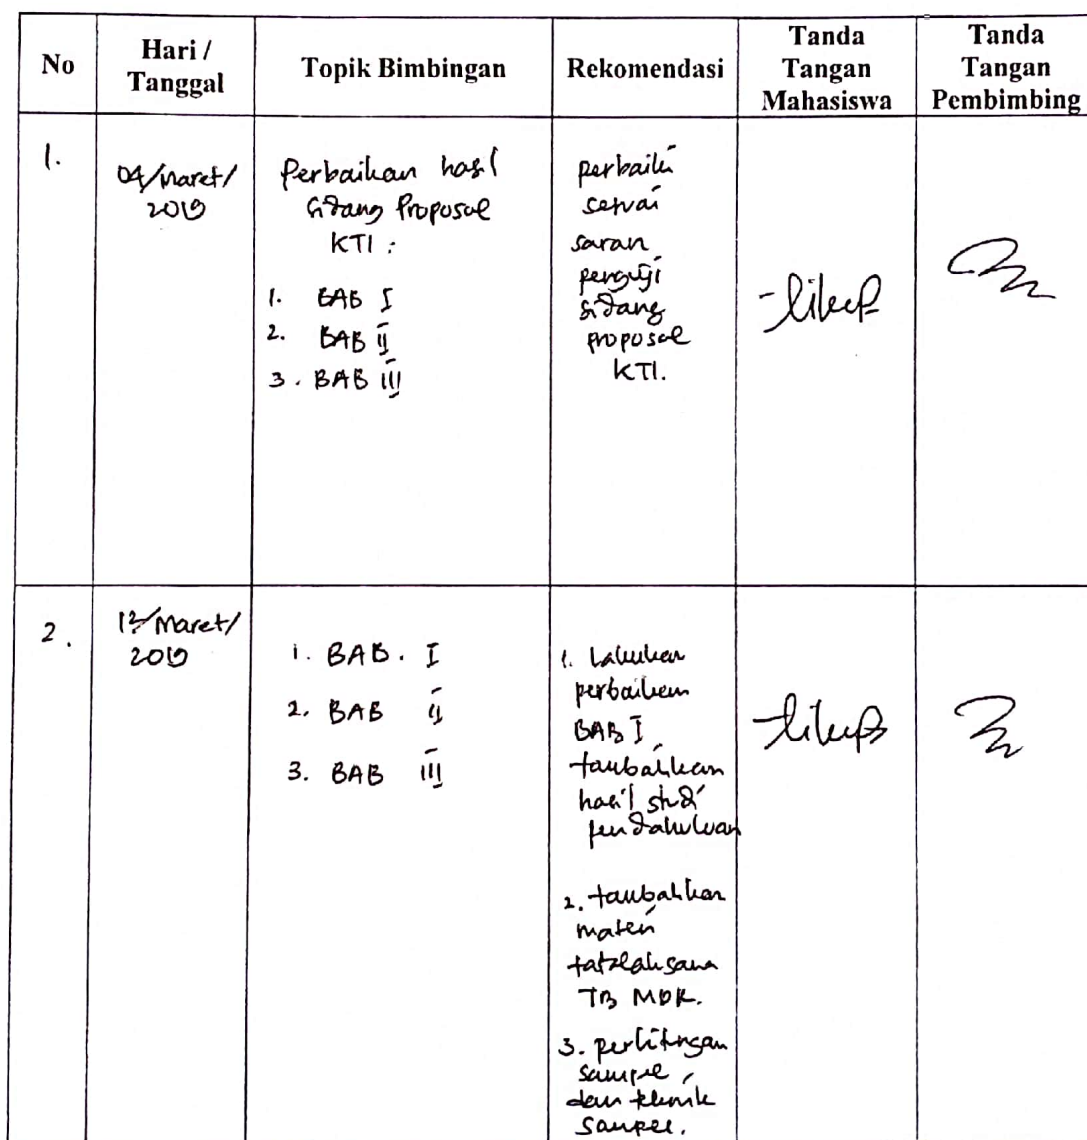 No
Hari /
Tanggal
Topik Bimbingan
Rekomendasi
Tanda
Tangan
Mahasiswa
Tanda
Tangan
Pembimbing
1.
04/Maret/
2019
Perbaikan hasil
Sidang Proposal
KTI :
1. BAB I
2. BAB II
3. BAB III
perbaiki
sesuai
saran
penguji
sidang
proposal
KTI.
2.
/Maret/
2019
1. BAB. I
2. BAB II
3. BAB III
1. Lakukan
perbaikan
BAB I
tambahkan
hasil studi
pendahuluan
2. tambahkan
materi
tatalaksana
TB MDR.
3. perhitungan
sampel
dan teknik
sampel.